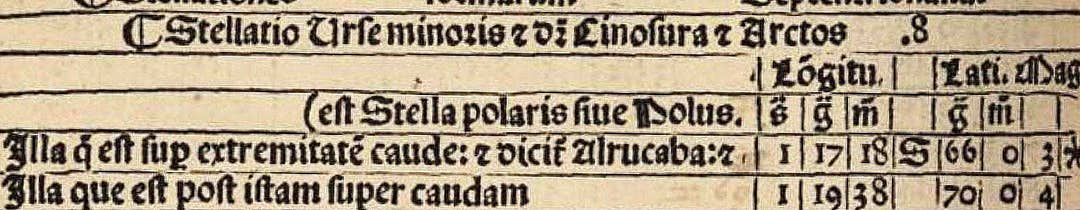 ☾ Stellatio Urſe minoꝛis ⁊ dꝛ̄ Cinoſura ⁊ Arctos .8
Lōgitu. Lati. Mag
(eſt Stella polaris ſiue Polus. s̄ g̃ m̃ g̃ m̃
Illa q̄ eſt ſuꝑ extremitatē caude: ⁊ dicit᷑ Alrucaba: ⁊ 1 17 18 S 66 0 3
Illa que eſt poſt iſtam ſuper caudam 1 19 38 70 0 4